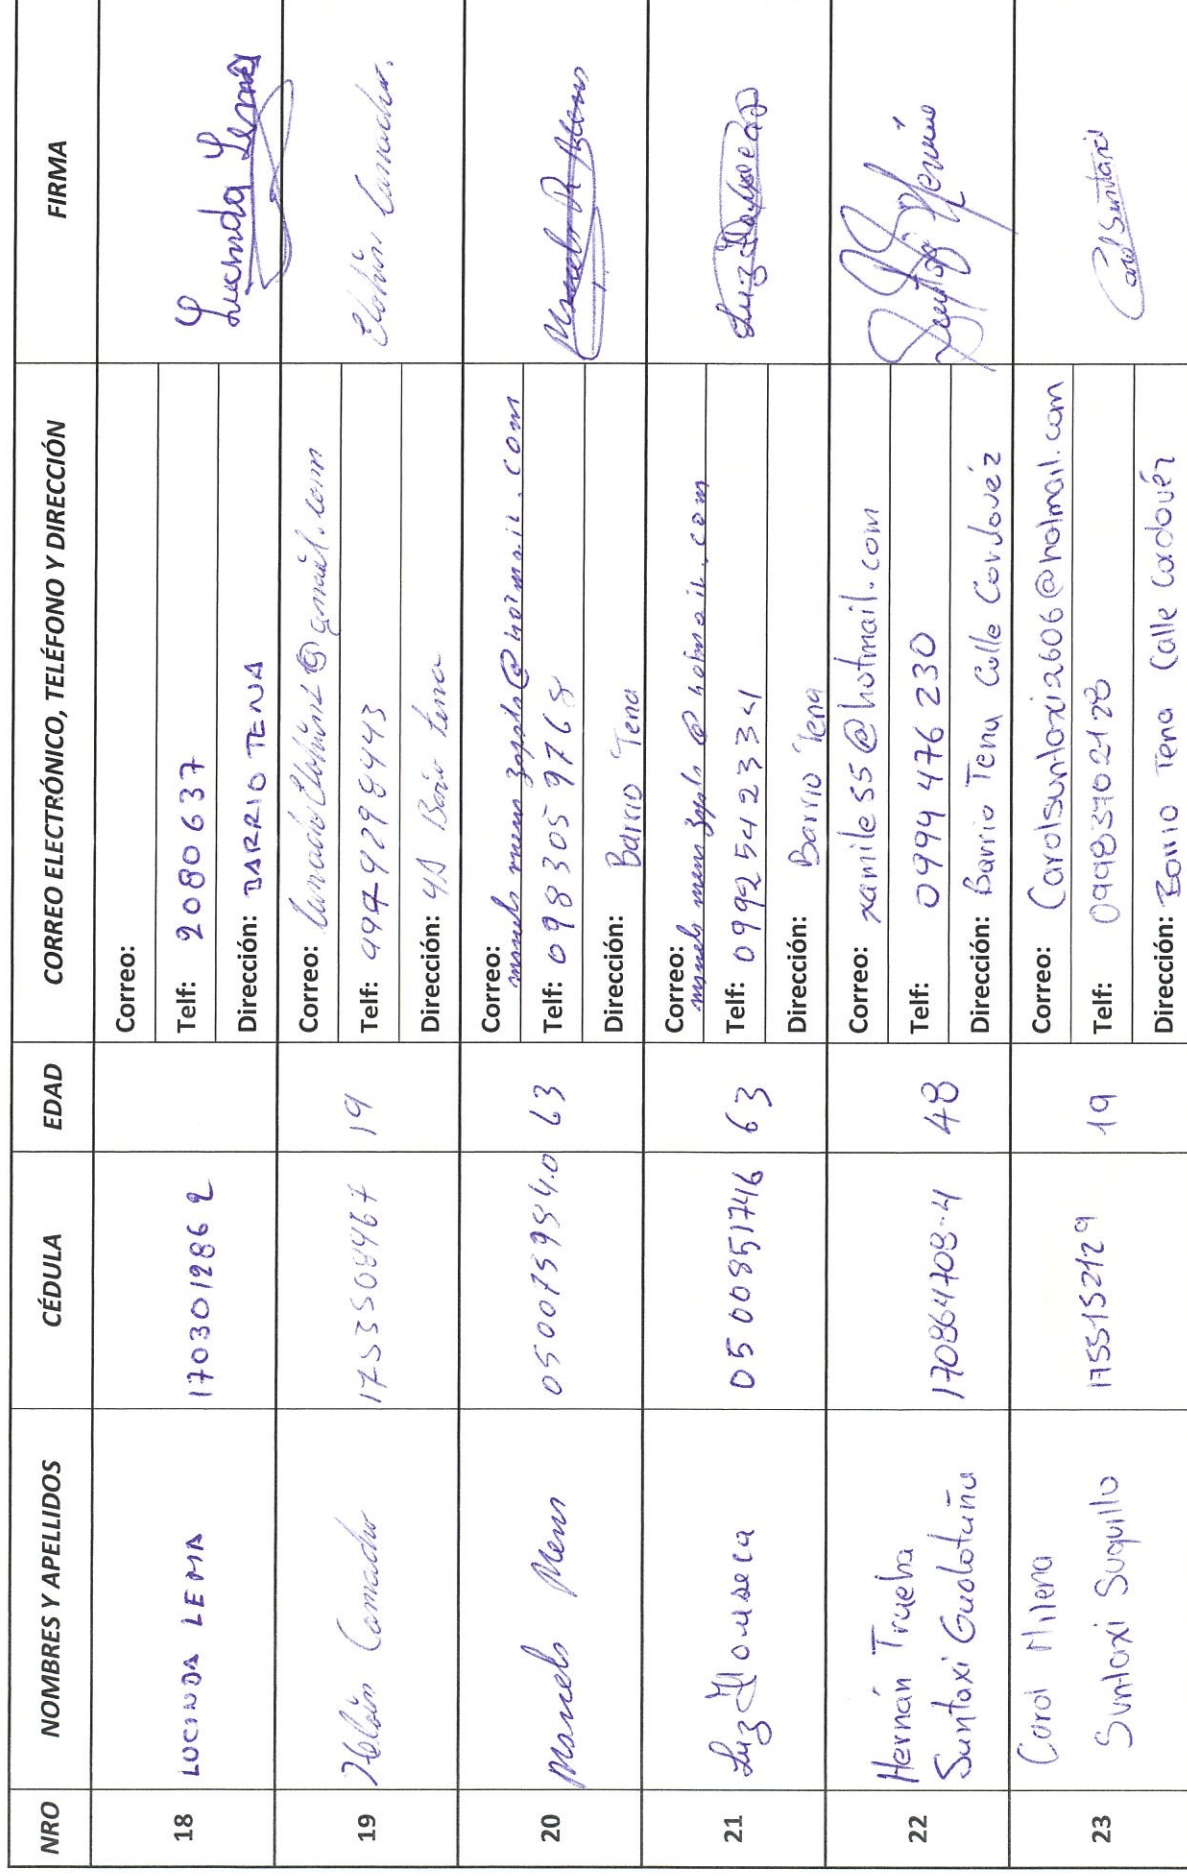 NRO NOMBRES Y APELLIDOS CÉDULA EDAD CORREO ELECTRÓNICO, TELÉFONO Y DIRECCIÓN FIRMA
18 LUCINDA LEMA 1703012862
Correo:
Telf: 2080637
Dirección: BARRIO TENA
Lucinda Lema
19 Camacho 19
Correo: @gmail.com
Telf:
Dirección: Barrio Tena
Camacho.
20 Mena 63
Correo: @hotmail.com
Telf: 0983059768
Dirección: Barrio Tena
21 Luz 0500851746 63
Correo: @hotmail.com
Telf: 0992542334
Dirección: Barrio Tena
Luz
22 Hernán Trueba
Suntaxi Gualotuña
170864708-4 48
Correo: xamile55@hotmail.com
Telf: 0994476230
Dirección: Barrio Tena Calle Cordovez
23 Carol Milena
Suntaxi Suquillo
1755152129 19
Correo: Carolsuntaxi2606@hotmail.com
Telf: 09983702128
Dirección: Barrio Tena Calle Cordovéz
Carol Suntaxi